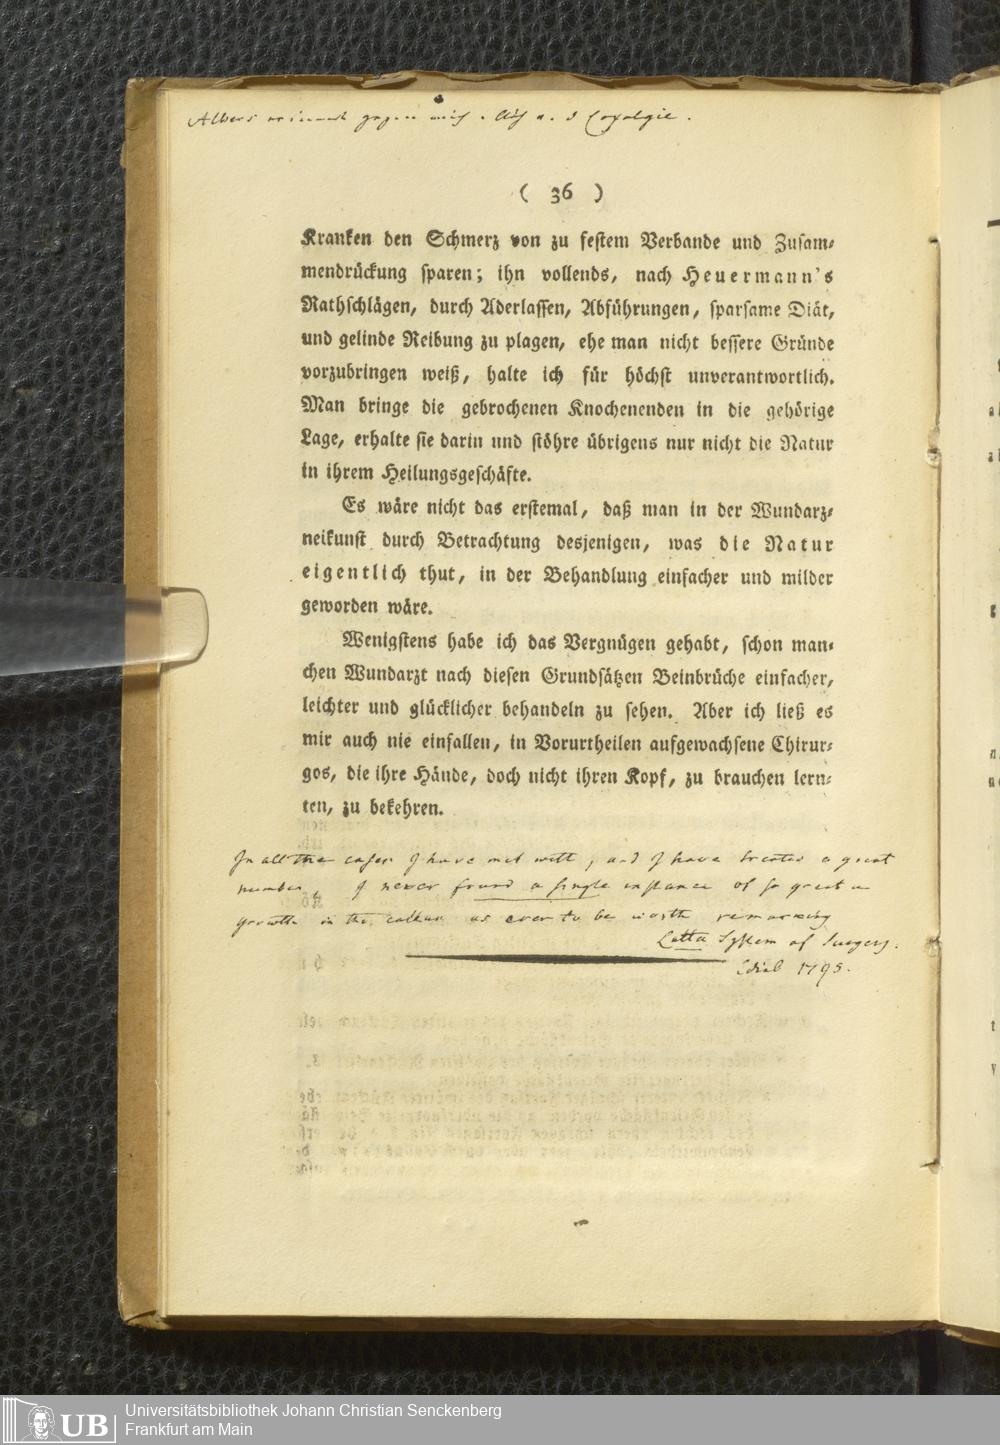 Albers erinnert gegen mich. d. Coxalgie.
( 36 )
Kranken den Schmerz von zu festem Verbande und Zusam⸗
mendrückung sparen; ihn vollends, nach Heuermann's
Rathschlägen, durch Aderlassen, Abführungen, sparsame Diät,
und gelinde Reibung zu plagen, ehe man nicht bessere Gründe
vorzubringen weiß, halte ich für höchst unverantwortlich.
Man bringe die gebrochenen Knochenenden in die gehörige
Lage, erhalte sie darin und stöhre übrigens nur nicht die Natur
in ihrem Heilungsgeschäfte.
Es wäre nicht das erstemal, daß man in der Wundarz⸗
neikunst durch Betrachtung desjenigen, was die Natur
eigentlich thut, in der Behandlung einfacher und milder
geworden wäre.
Wenigstens habe ich das Vergnügen gehabt, schon man⸗
chen Wundarzt nach diesen Grundsätzen Beinbrüche einfacher,
leichter und glücklicher behandeln zu sehen. Aber ich ließ es
mir auch nie einfallen, in Vorurtheilen aufgewachsene Chirur⸗
gos, die ihre Hände, doch nicht ihren Kopf, zu brauchen lern⸗
ten, zu bekehren.
In all the cases I have met with, and I have treated a great
number, I never found a single instance of so great a
growth in the callus as ever to be worth remarking
Latta System of Surgery.
Edinb 1795.
UB Universitätsbibliothek Johann Christian Senckenberg
Frankfurt am Main